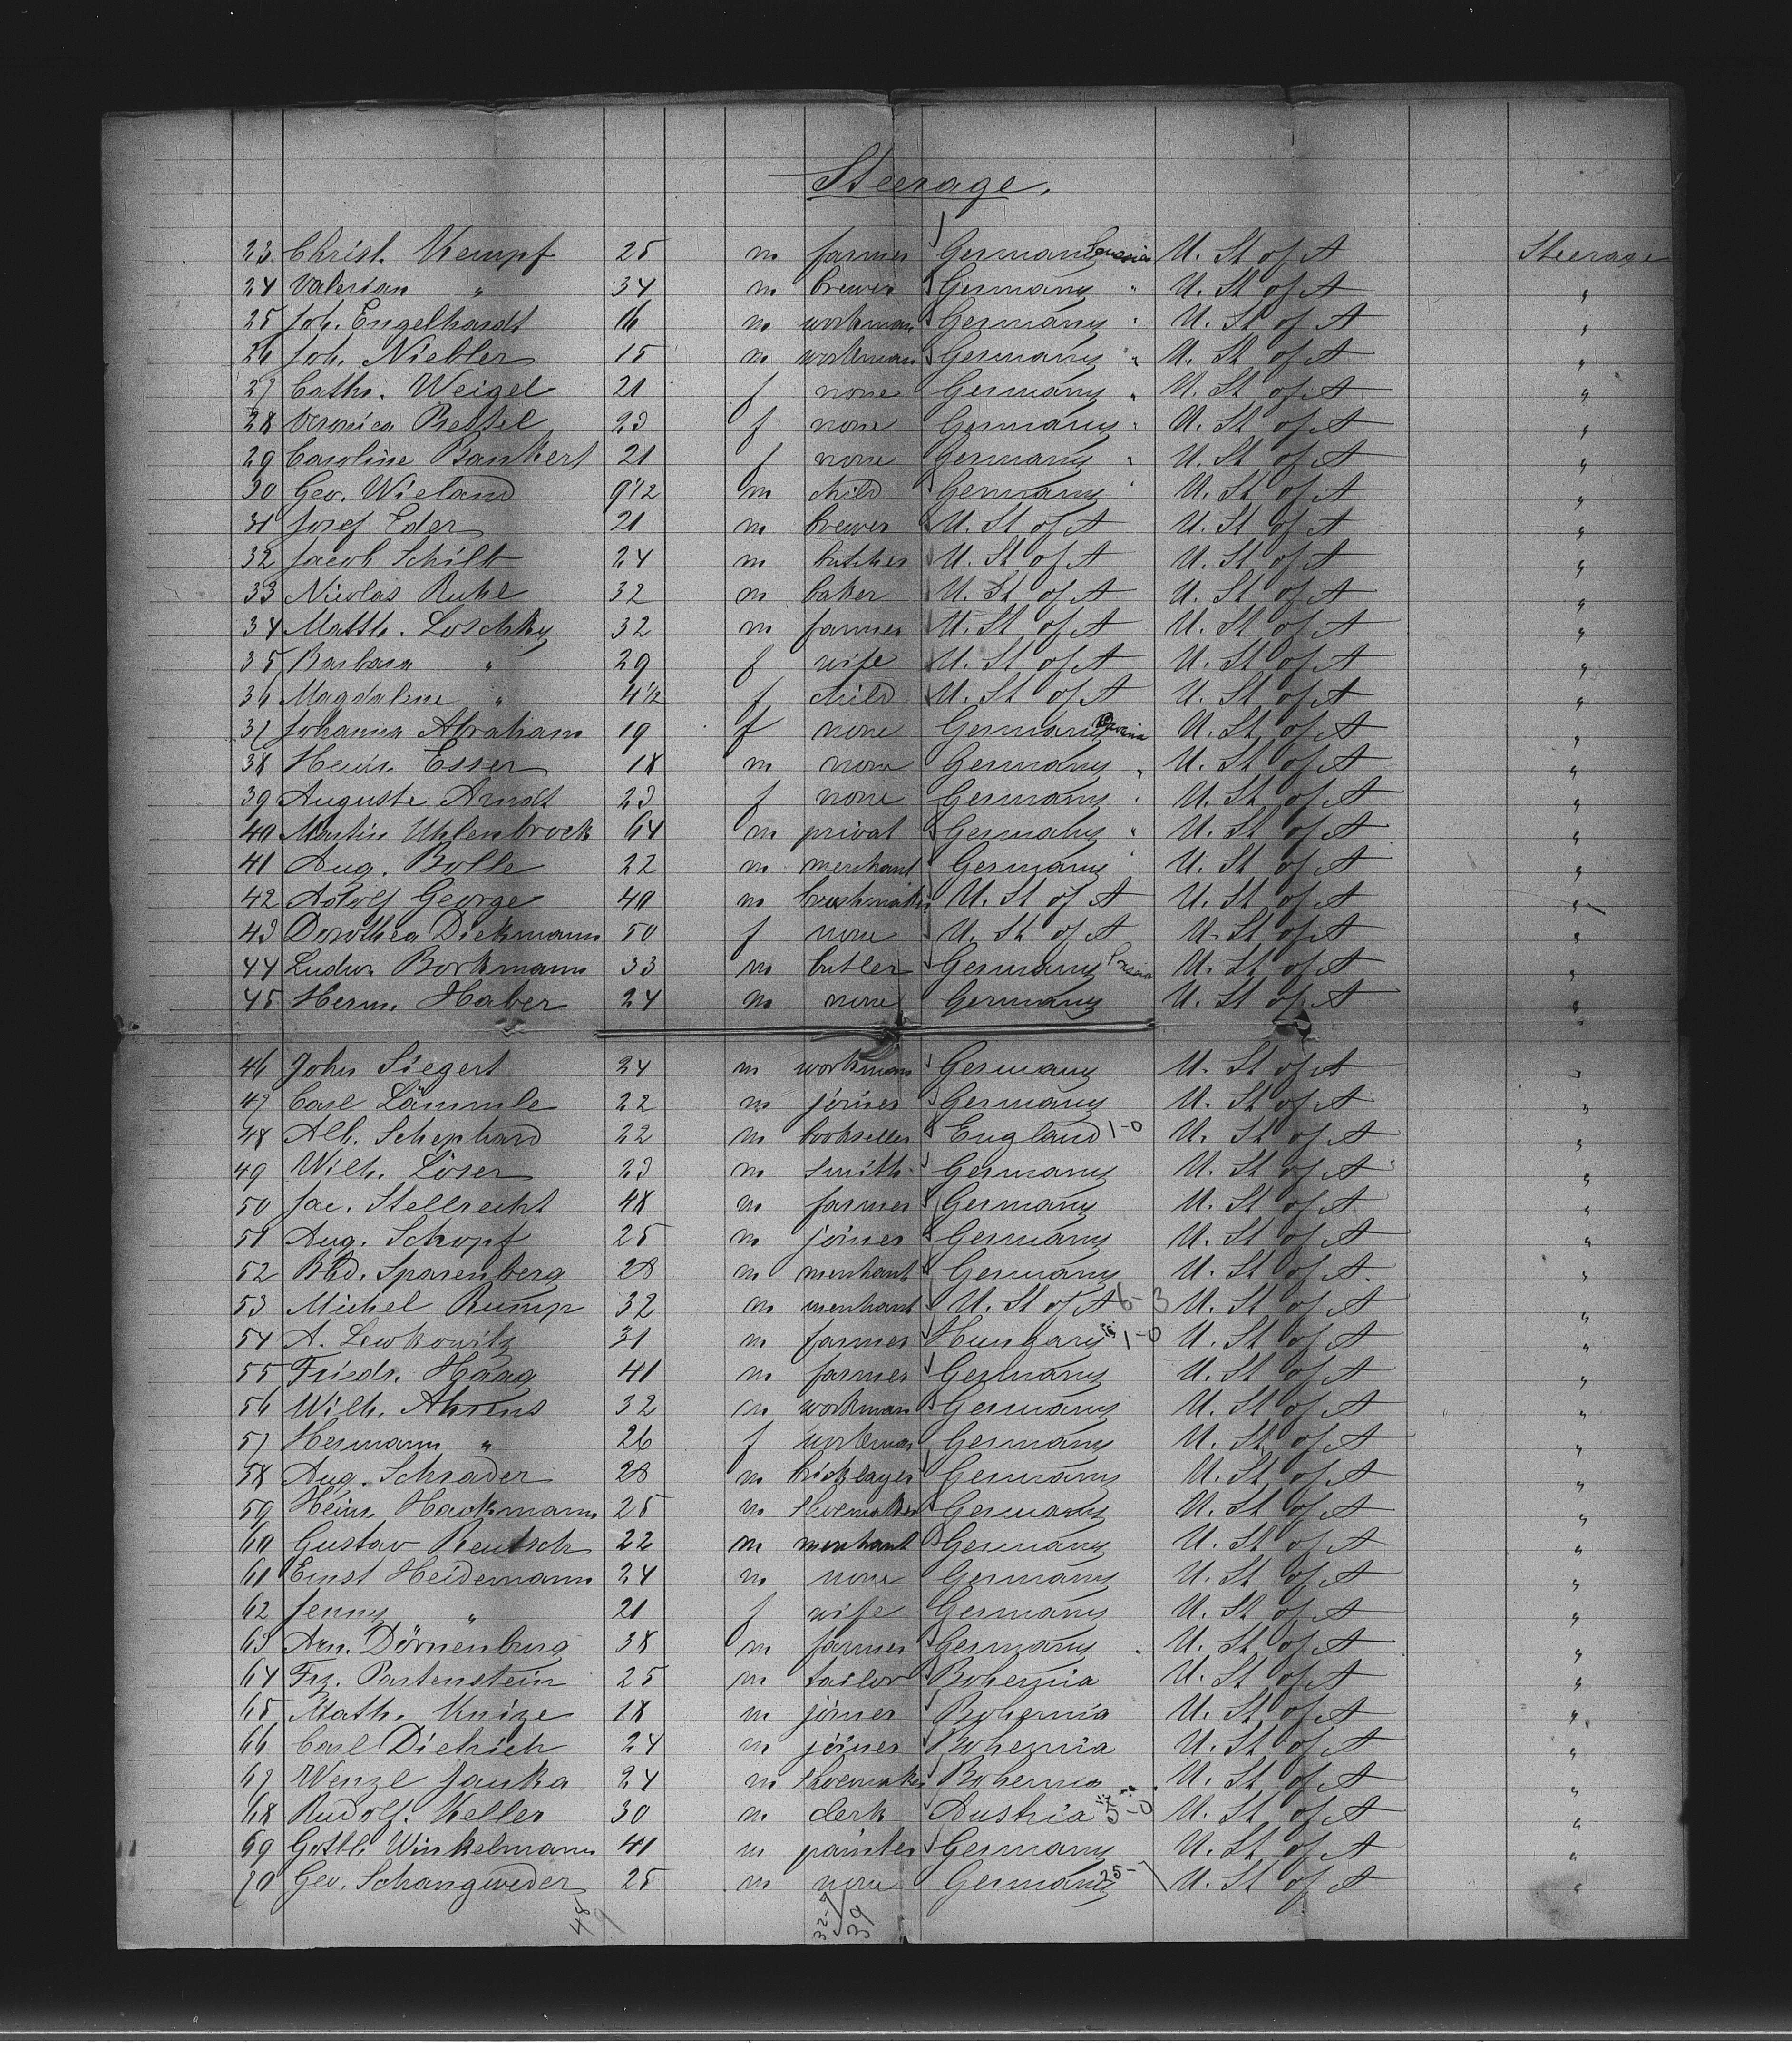 Steerage.
23 Christ. Kempf 25 m farmer Germany U. St of A Steerage
24 Valerian " 34 m brewer Germany " U. St of A "
25 Joh. Engelhardt 16 m workman Germany " U. St of A "
26 Joh. Niebler 15 m workman Germany " U. St of A "
27 Cathr. Weigel 21 f none Germany " U. St of A "
28 Veronica Bressel 23 f none Germany " U. St of A "
29 Caroline Bankert 21 f none Germany " U. St of A "
30 Geo. Wieland 9 1/2 m child Germany " U. St of A "
31 Josef Eder 21 m brewer U. St of A U. St of A "
32 Jacob Schilt 24 m butcher U. St of A U. St of A "
33 Nicolas Ruhl 32 m baker U. St of A U. St of A "
34 Matth. Loschky 32 m farmer U. St of A U. St of A "
35 Barbara " 29 f wife U. St of A U. St of A "
36 Magdalene " 4 1/2 f child U. St of A U. St of A "
37 Johanna Abraham 19 f none Germany U. St of A "
38 Heinr. Esser 18 m none Germany " U. St of A "
39 Auguste Arndt 23 f none Germany " U. St of A "
40 Martin Uhlenbrock 64 m privat Germany " U. St of A "
41 Aug. Bolle 22 m merchant Germany " U. St of A "
42 Adolf George 40 m brushmaker U. St of A U. St of A "
43 Dorothea Diekmann 50 f none U. St of A U. St of A "
44 Ludw. Borkmann 33 m butler Germany Prussia U. St of A "
45 Herm. Haber 24 m none Germany U. St of A "
46 John Siegert 24 m workman Germany U. St of A "
47 Carl Lämmle 22 m joiner Germany U. St of A "
48 Alb. Schephard 22 m bookseller England 1-0 U. St of A "
49 Wilh. Löser 23 m smith Germany U. St of A "
50 Jac. Stellrecht 48 m farmer Germany U. St of A "
51 Aug. Schopf 25 m joiner Germany U. St of A "
52 Bhd. Sparenberg 28 m merchant Germany U. St of A "
53 Michel Rump 32 m merchant U. St of A 6-3 U. St of A "
54 A. Lewkowitz 31 m farmer Hungary 1-0 U. St of A "
55 Friedr. Haag 41 m farmer Germany U. St of A "
56 Wilh. Ahrens 32 m workman Germany U. St of A "
57 Hermann " 26 f workman Germany U. St of A "
58 Aug. Schrader 28 m bricklayer Germany U. St of A "
59 Heinr. Hackmann 25 m shoemaker Germany U. St of A "
60 Gustav Rentsch 22 m merchant Germany U. St of A "
61 Ernst Heidemann 24 m none Germany U. St of A "
62 Jenny " 21 f wife Germany U. St of A "
63 Arn. Dörnenburg 38 m farmer Germany U. St of A "
64 Frz. Partenstein 25 m tailor Bohemia U. St of A "
65 Math. Knize 18 m joiner Bohemia U. St of A "
66 Carl Dietrich 24 m joiner Bohemia U. St of A "
67 Wenzl Janka 24 m shoemaker Bohemia U. St of A "
68 Rudolf Keller 30 m clerk Austria 5-0 U. St of A "
69 Gottl. Winkelmann 41 m painter Germany U. St of A "
70 Geo. Schangweder 25 m none Germany 25-7 U. St of A "
48 9 32-7 39